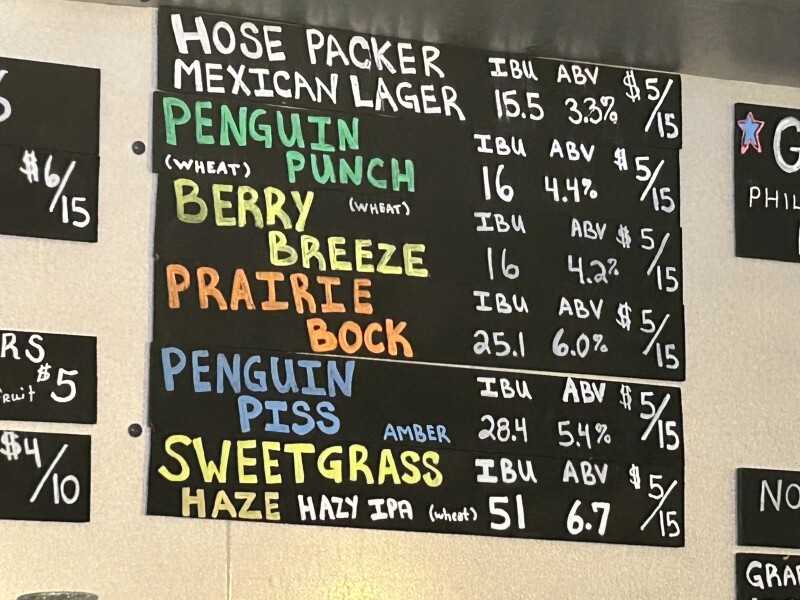 HOSE PACKER
MEXICAN LAGER
IBU ABV $5/15
15.5 3.3%
PENGUIN
(WHEAT) PUNCH
IBU ABV $5/15
16 4.4%
BERRY (WHEAT)
BREEZE
IBU ABV $5/15
16 4.2%
PRAIRIE
BOCK
IBU ABV $5/15
25.1 6.0%
PENGUIN
PISS AMBER
IBU ABV $5/15
28.4 5.4%
SWEETGRASS
HAZE HAZY IPA (wheat)
IBU ABV $5/15
51 6.7
$6/15
RS
$5
$4/10
G
PHIL
NO
GRA